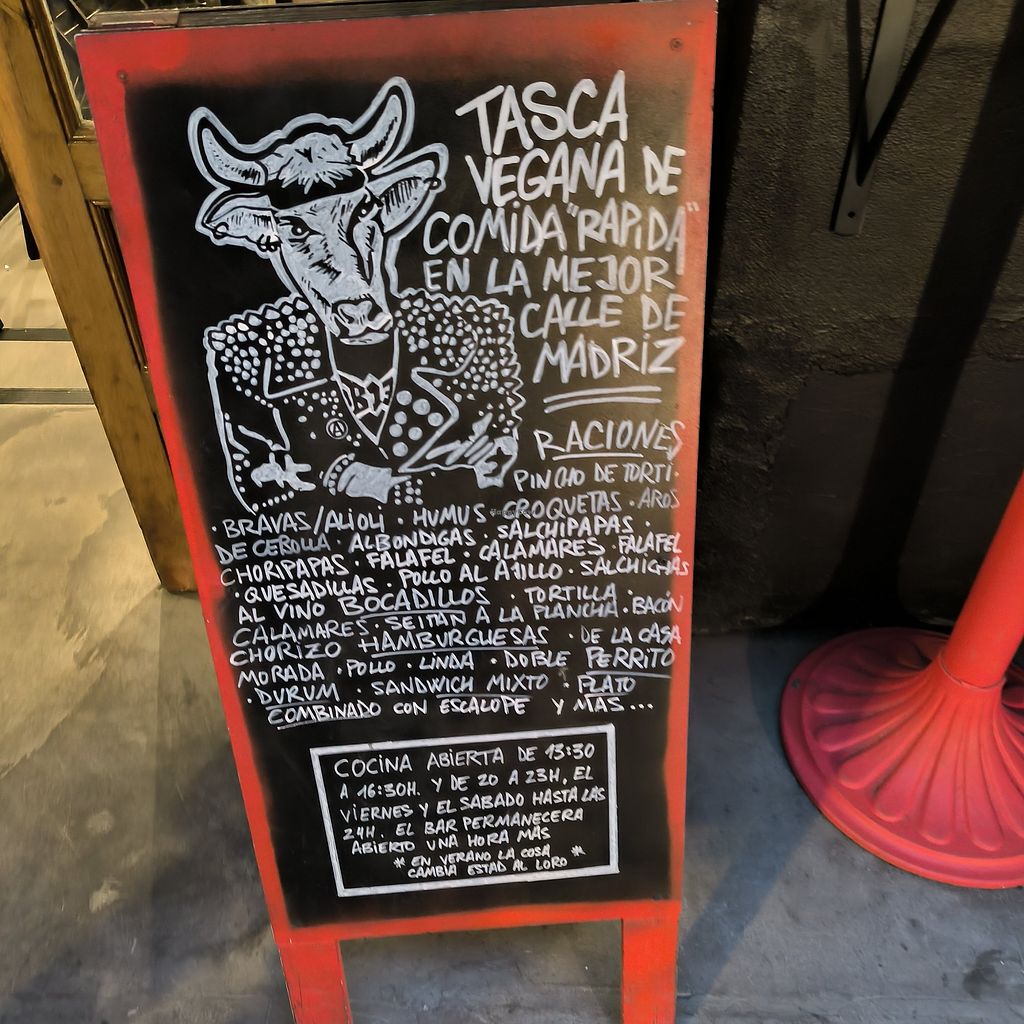 TASCA
VEGANA DE
COMIDA "RAPIDA"
EN LA MEJOR
CALLE DE
MADRIZ
RACIONES
PINCHO DE TORTI·
· BRAVAS/ALIOLI · HUMUS · CROQUETAS · AROS
DE CEBOLLA · ALBONDIGAS · SALCHIPAPAS ·
CHORIPAPAS · FALAFEL · CALAMARES · FALAFEL
· QUESADILLAS · POLLO AL AJILLO · SALCHICHAS
AL VINO BOCADILLOS · TORTILLA ·
CALAMARES · SEITAN A LA PLANCHA · BACÓN
CHORIZO HAMBURGUESAS · DE LA CASA
MORADA · POLLO · LINDA · DOBLE PERRITO
· DURUM · SANDWICH MIXTO · PLATO
COMBINADO CON ESCALOPE Y MAS...
COCINA ABIERTA DE 13:30
A 16:30H. Y DE 20 A 23H, EL
VIERNES Y EL SABADO HASTA LAS
24H. EL BAR PERMANECERA
ABIERTO UNA HORA MAS
* EN VERANO LA COSA *
CAMBIA ESTAD AL LORO